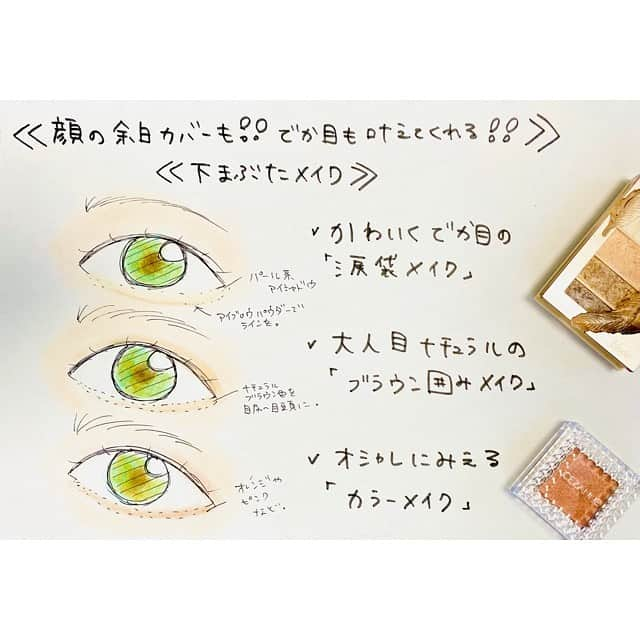 ≪顔の余白カバーも!!でか目も叶えてくれる!!≫
≪下まぶたメイク≫
✓ かわいくでか目の
「涙袋メイク」
パール系
アイシャドウ
アイブロウパウダーで
ラインを。
✓ 大人目ナチュラルの
「ブラウン囲みメイク」
ナチュラル
ブラウン色を
目尻〜目頭に。
✓ オシャレにみえる
「カラーメイク」
オレンジや
ピンク
など。